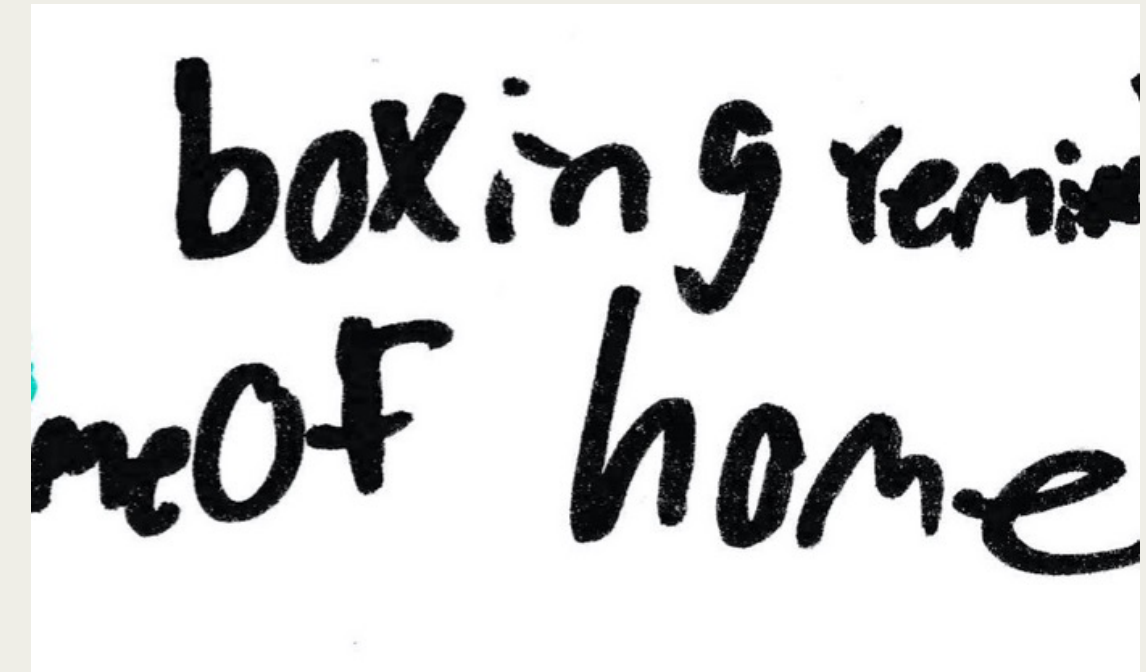 boxing remin
me of home